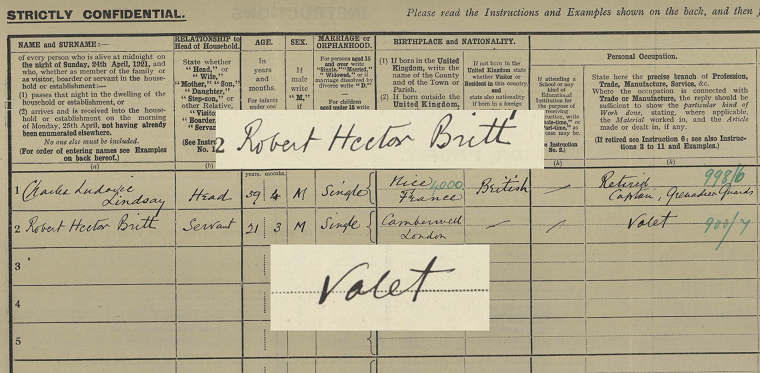 STRICTLY CONFIDENTIAL.
Please read the Instructions and Examples shown on the back, and then
NAME and SURNAME:—
of every person who is alive at midnight on
the night of Sunday, 24th April, 1921, and
who, whether as member of the family or
as visitor, boarder or servant in the house-
hold or establishment:—
(1) passes that night in the dwelling of the
household or establishment, or
(2) arrives and is received into the house-
hold or establishment on the morning
of Monday, 25th April, not having already
been enumerated elsewhere.
No one else must be included.
(For order of entering names see Examples
on back hereof.)
(a)
RELATIONSHIP to
Head of Household.
State whether
"Head," or
"Wife,"
"Mother," "Son,"
"Daughter,"
"Step-son," or
other Relative,
"Visitor
"Boarder
"Servan
(See Instru
No. 1
(b)
AGE.
In
years
and
months.
For infants
under one
SEX.
If
male
write
"M,"
MARRIAGE or
ORPHANHOOD.
For persons aged 15
and over write
"Single," "Married,"
"Widowed," or if
marriage dissolved by
divorce write "D."
For children
aged under 15 write
BIRTHPLACE and NATIONALITY.
(1) If born in the United
Kingdom, write the
name of the County
and of the Town or
Parish.
(2) If born outside the
United Kingdom,
If not born in the
United Kingdom state
whether Visitor or
Resident in this country,
and
state also nationality
if born in a foreign
If attending a
School or any
kind of
Educational
Institution for
the purpose of
receiving
instruction, write
"Whole-time," or
"Part-time," as
case may be.
Instruction
No. 2.)
(h)
Personal Occupation.
State here the precise branch of Profession,
Trade, Manufacture, Service, &c.
Where the occupation is connected with
Trade or Manufacture, the reply should be
sufficient to show the particular kind of
Work done, stating, where applicable,
the Material worked in, and the Article
made or dealt in, if any.
(If retired see Instruction 6; see also Instruc-
tions 3 to 11 and Examples.)
(k)
2 Robert Hector Britt
years. months.
1 Charles Ludovic Lindsay Head 39 4 M Single Nice France 4000 British Retired Captain, Grenadier Guards 998/6
2 Robert Hector Britt Servant 21 3 M Single Camberwell London Valet 900/7
3
Valet
4
5